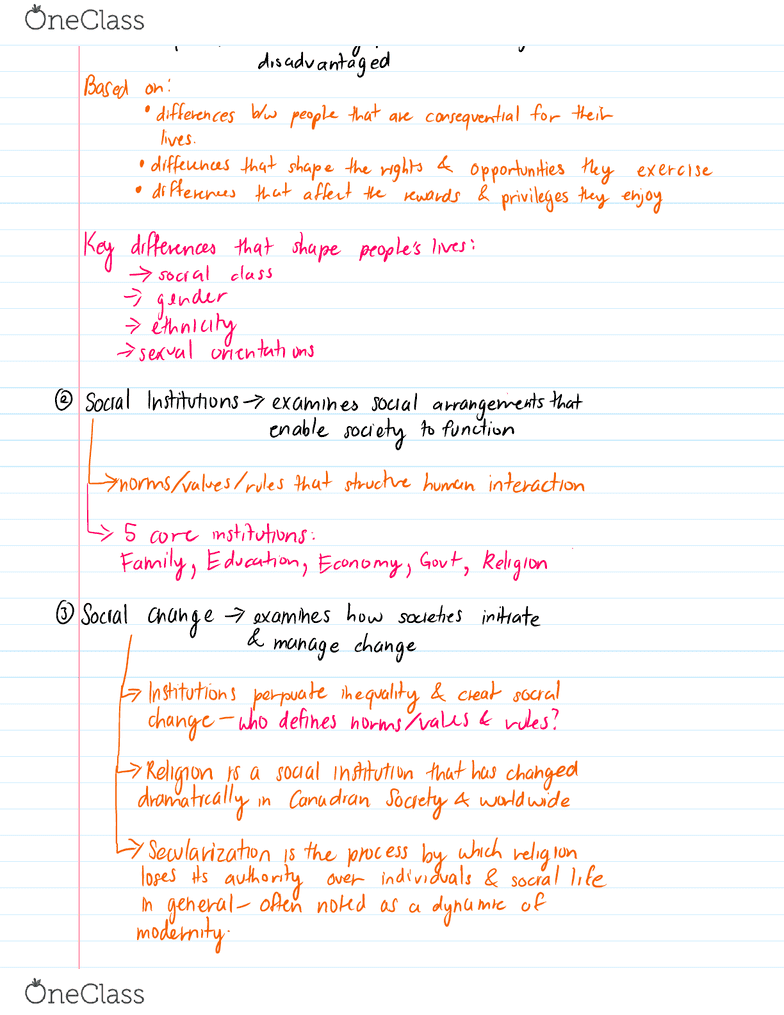 OneClass
disadvantaged
Based on:
• differences b/w people that are consequential for their
lives.
• differences that shape the rights & opportunities they exercise
• differences that affect the rewards & privileges they enjoy
Key differences that shape people's lives:
→ social class
→ gender
→ ethnicity
→ sexual orientations
② Social Institutions → examines social arrangements that
enable society to function
→ norms/values/rules that structure human interaction
→ 5 core institutions:
Family, Education, Economy, Govt, Religion
③ Social change → examines how societies initiate
& manage change
→ Institutions perpuate inequality & creat social
change – who defines norms/values & rules?
→ Religion is a social institution that has changed
dramatically in Canadian Society & worldwide
→ Secularization is the process by which religion
loses its authority over individuals & social life
in general – often noted as a dynamic of
modernity.
OneClass